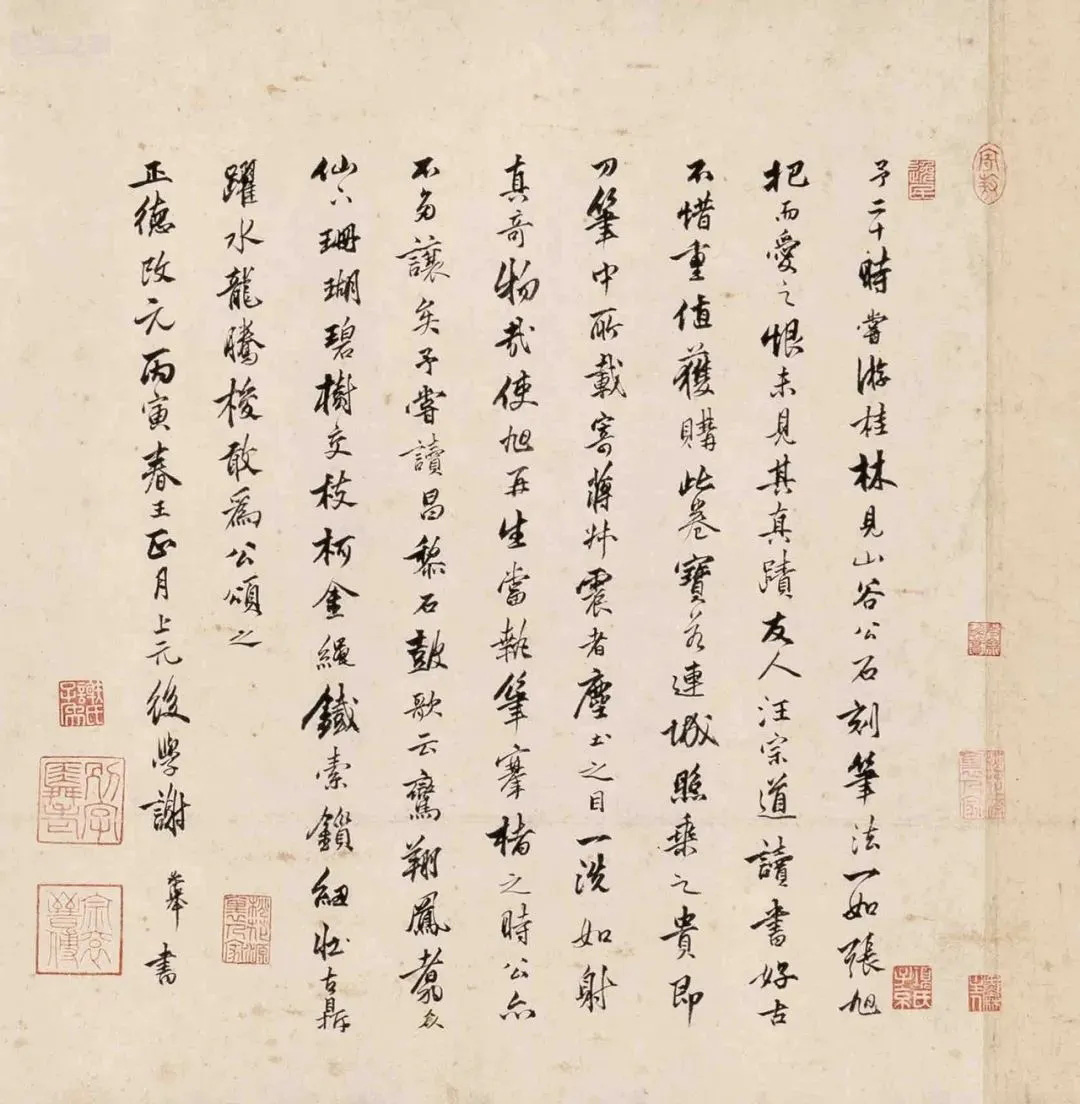 予二十時嘗游桂林見山谷公石刻筆法一如張旭
把而愛之恨未見其真蹟友人汪宗道讀書好古
不惜重值獲購此卷寶若連城照乘之貴即
刀筆中所載寄蔣艸震者塵土之目一洗如射
真奇物哉使旭再生當執筆搴楮之時公亦
不多讓矣予嘗讀昌黎石鼓歌云鸞翔鳳翥众
仙下珊瑚碧樹交枝柯金繩鐵索鎖紐壯古鼎
躍水龍騰梭敢為公頌之
正德改元丙寅春王正月上元後學謝 書
謝氏
項氏子京